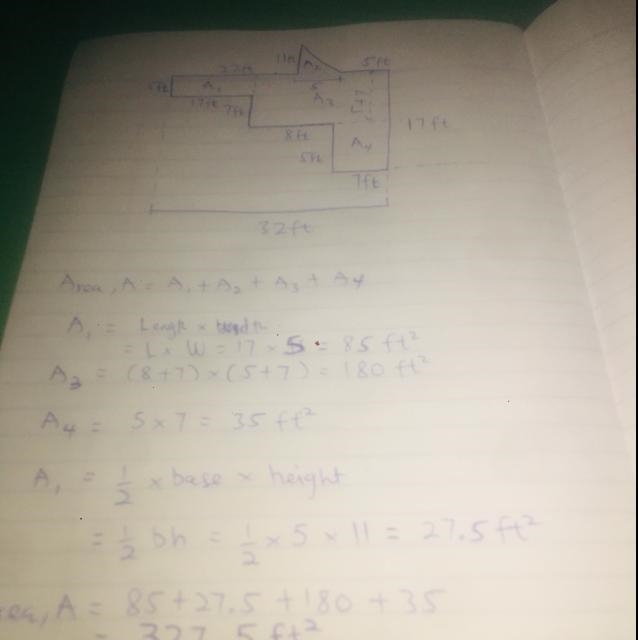 11ft A₂ 5ft
22ft
5ft A₁ 5
17ft 7ft A₃ 17ft
8ft A₄
5ft
7ft
32ft
Area, A = A₁ + A₂ + A₃ + A₄
A₁ = Length × width
= L × W = 17 × 5 = 85 ft²
A₃ = (8+7) × (5+7) = 180 ft²
A₄ = 5 × 7 = 35 ft²
A₁ = 1/2 × base × height
= 1/2 bh = 1/2 × 5 × 11 = 27.5 ft²
A = 85 + 27.5 + 180 + 35
= 327.5 ft²